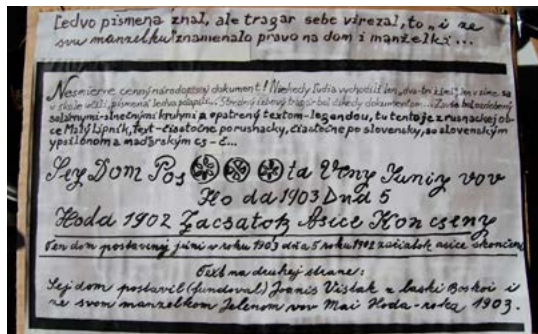 Ledvo písmena znal, ale tragar sebe virezal, to „i ze
svu manzelku" znamenalo pravo na dom i manželki...
Nesmierne cenný národopisný dokument! Niekedy ľudia vychodili len „dva-tri zimi", len v zime sa
v škole učili, písmená ledva polapili... Stredný izbový tragar bol vždy dokumentom... Zvyčajne bol ozdobený
solárnymi-slnečnými kruhmi a opatrený textom-legendou, tu tento je z rusnackej ob-
ce Malý Lipník, text-čiastočne porushacky, čiastočne po slovensky, so slovenským
ypsilónom a maďarským cs - č...
Sey Dom Pos ta Veny Juniy vov
Ho da 1903 Dna 5
Hoda 1902 Zacsatok Asice Koncseny
Ten dom postavený júni v roku 1903 dňa 5 roku 1902 začiatok asice skončený
Text na druhej strane:
Sej dom postavil (fundoval) Joanis Vislak z laski Boskoi i
ze svom manzelkom Jelenom vov Mai Hoda-roka 1903.